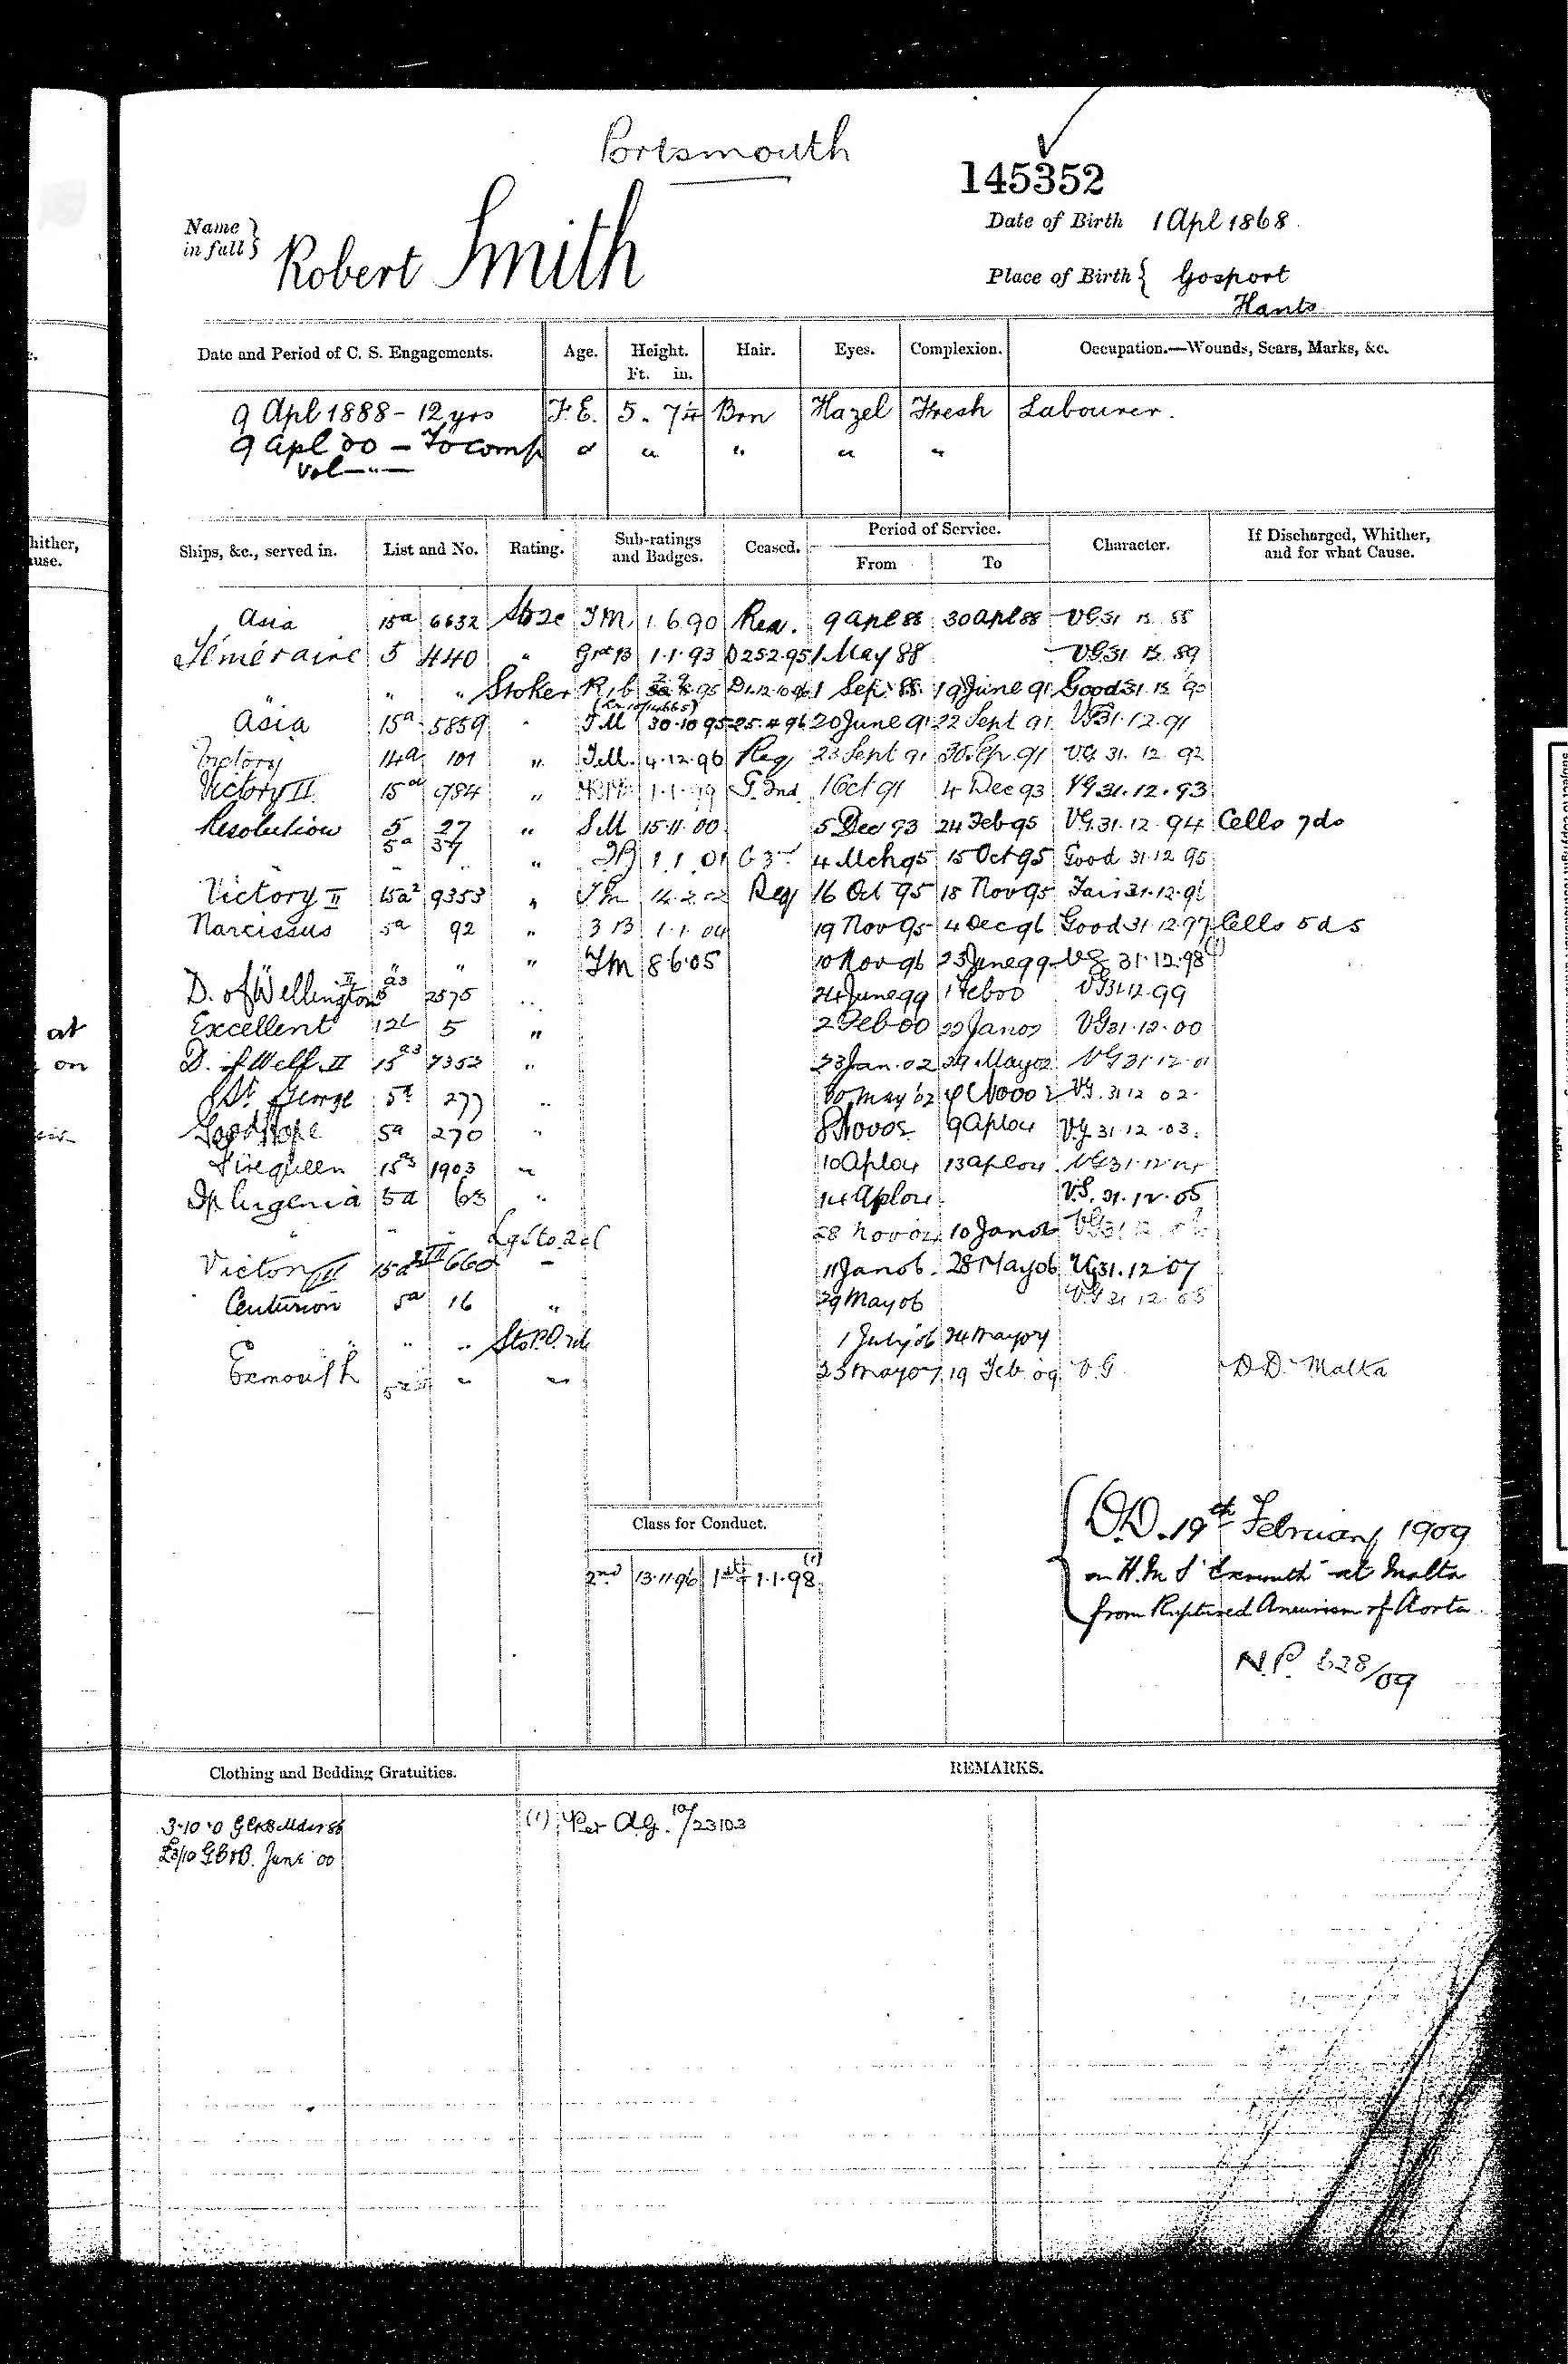 Portsmouth
145352
Name in full } Robert Smith
Date of Birth 1 Apl 1868.
Place of Birth { Gosport
Hants
Date and Period of C. S. Engagements. Age. Height. Ft. in. Hair. Eyes. Complexion. Occupation.—Wounds, Scars, Marks, &c.
9 Apl 1888 - 12 yrs F.E. 5. 7¼ Brn Hazel Fresh Labourer.
9 Apl 00 - To comp " " " " "
Vol — " —
Ships, &c., served in. List and No. Rating. Sub-ratings and Badges. Ceased. Period of Service. From To Character. If Discharged, Whither, and for what Cause.
Asia 15a 6632 Sto 2c T.M. 1.6.90 9 Apl 88 30 Apl 88 VG 31 12 88
Téméraire 5 440 " 1.1.93 D 25 2.95 1 May 88 VG 31 12 89
" " " Stoker 1 Sep 88 19 June 91 Good 31 12 90
Asia 15a 5859 " T M 30.10.95 25.4.96 20 June 91 22 Sept 91 VG 31.12.91
Victory 14a 101 " T.M. 4.12.96 23 Sept 91 30 Sep 91 VG 31.12.92
Victory II 15a 984 " 1.1.99 1 Oct 91 4 Dec 93 VG 31.12.93
Resolution 5 27 " S M 15.11.00 5 Dec 93 24 Feb 95 VG 31.12.94 Cells 7 ds
" 5a 37 " 1.1.01 4 Mch 95 15 Oct 95 Good 31.12.95
Victory II 15a2 9353 " 14.2.02 16 Oct 95 18 Nov 95 Fair 31.12.96
Narcissus 5a 92 " 3 B 1.1.04 19 Nov 95 4 Dec 96 Good 31.12.97 Cells 5 ds
" " " " T M 8.6.05 10 Nov 96 23 June 99 VG 31.12.98 (1)
D. of Wellington II 2575 " 24 June 99 1 Feb 00 VG 31.12.99
Excellent 12 5 " 2 Feb 00 22 Jan 02 VG 31.12.00
D. of Well II 15a3 7352 " 23 Jan. 02 29 May 02 VG 31.12.01
St. George 5a 277 " 30 May 02 VG. 31 12 02.
Good Hope 5a 270 " 8 Nov 02 9 Apl 04 VG 31.12.03.
Firequeen 15a3 1903 " 10 Apl 04 13 Apl 04 VG 31.12.04
Iphigenia 5a 63 " 14 Apl 04 V.G. 31.12.05
" " " 28 Nov 04 10 Jan 06 VG 31.12.06
Victory II 660 " 11 Jan 06. 28 May 06 VG 31.12 07
Centurion 5a 16 " 29 May 06 VG 31 12 08
" " " Sto P.O. 1 July 06 24 May 07
Exmouth " " 25 May 07 19 Feb 09 V.G D.D. Malta
Class for Conduct.
2nd 13.11.96 1st 1.1.98 (1)
D.D. 19th February 1909
on H.M.S "Exmouth" at Malta
from Ruptured Aneurism of Aorta
N.P. 628/09
Clothing and Bedding Gratuities. REMARKS.
(1) Per A.G. 10/23103
June 00